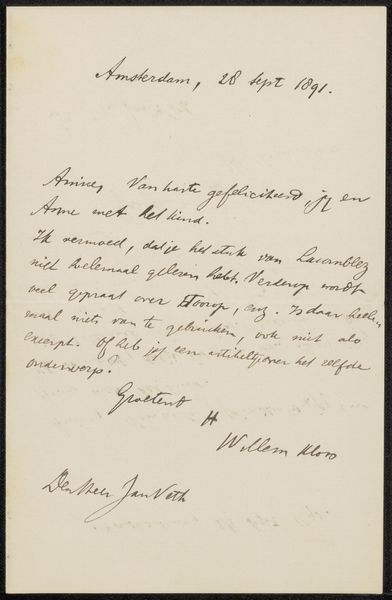 Amsterdam, 28 Sept 1891.
Amice, Van harte gefeliciteerd, jij en
Anna met het kind.
Ik vermoed, dat je het stuk van Lacomblez
niet heelemaal gelezen hebt. Verderop wordt
veel gepraat over Toorop, enz. Is daar heele-
maal niets van te gebruiken, ook niet als
excerpt. Of heb jij een artikeltje over het zelfde
onderwerp?
Groetend
Willem Kloos
Den Heer Jan Veth